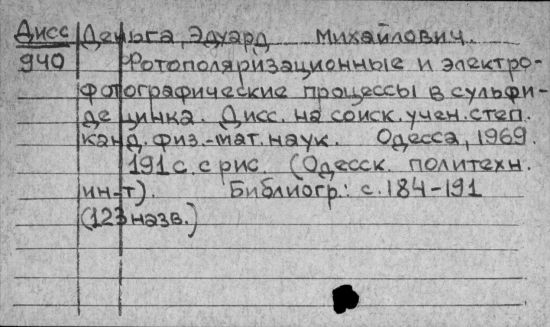 Дисс Деньга, Эдуард Михайлович.
940 Фотополяризационные и электро-
фотографические процессы в сульфи-
де цинка. Дисс. на соиск. учен. степ.
канд. физ.-мат. наук. Одесса, 1969.
191 с. с рис. (Одесск. политехн.
ин-т). Библиогр.: с. 184-191
(123 назв.)